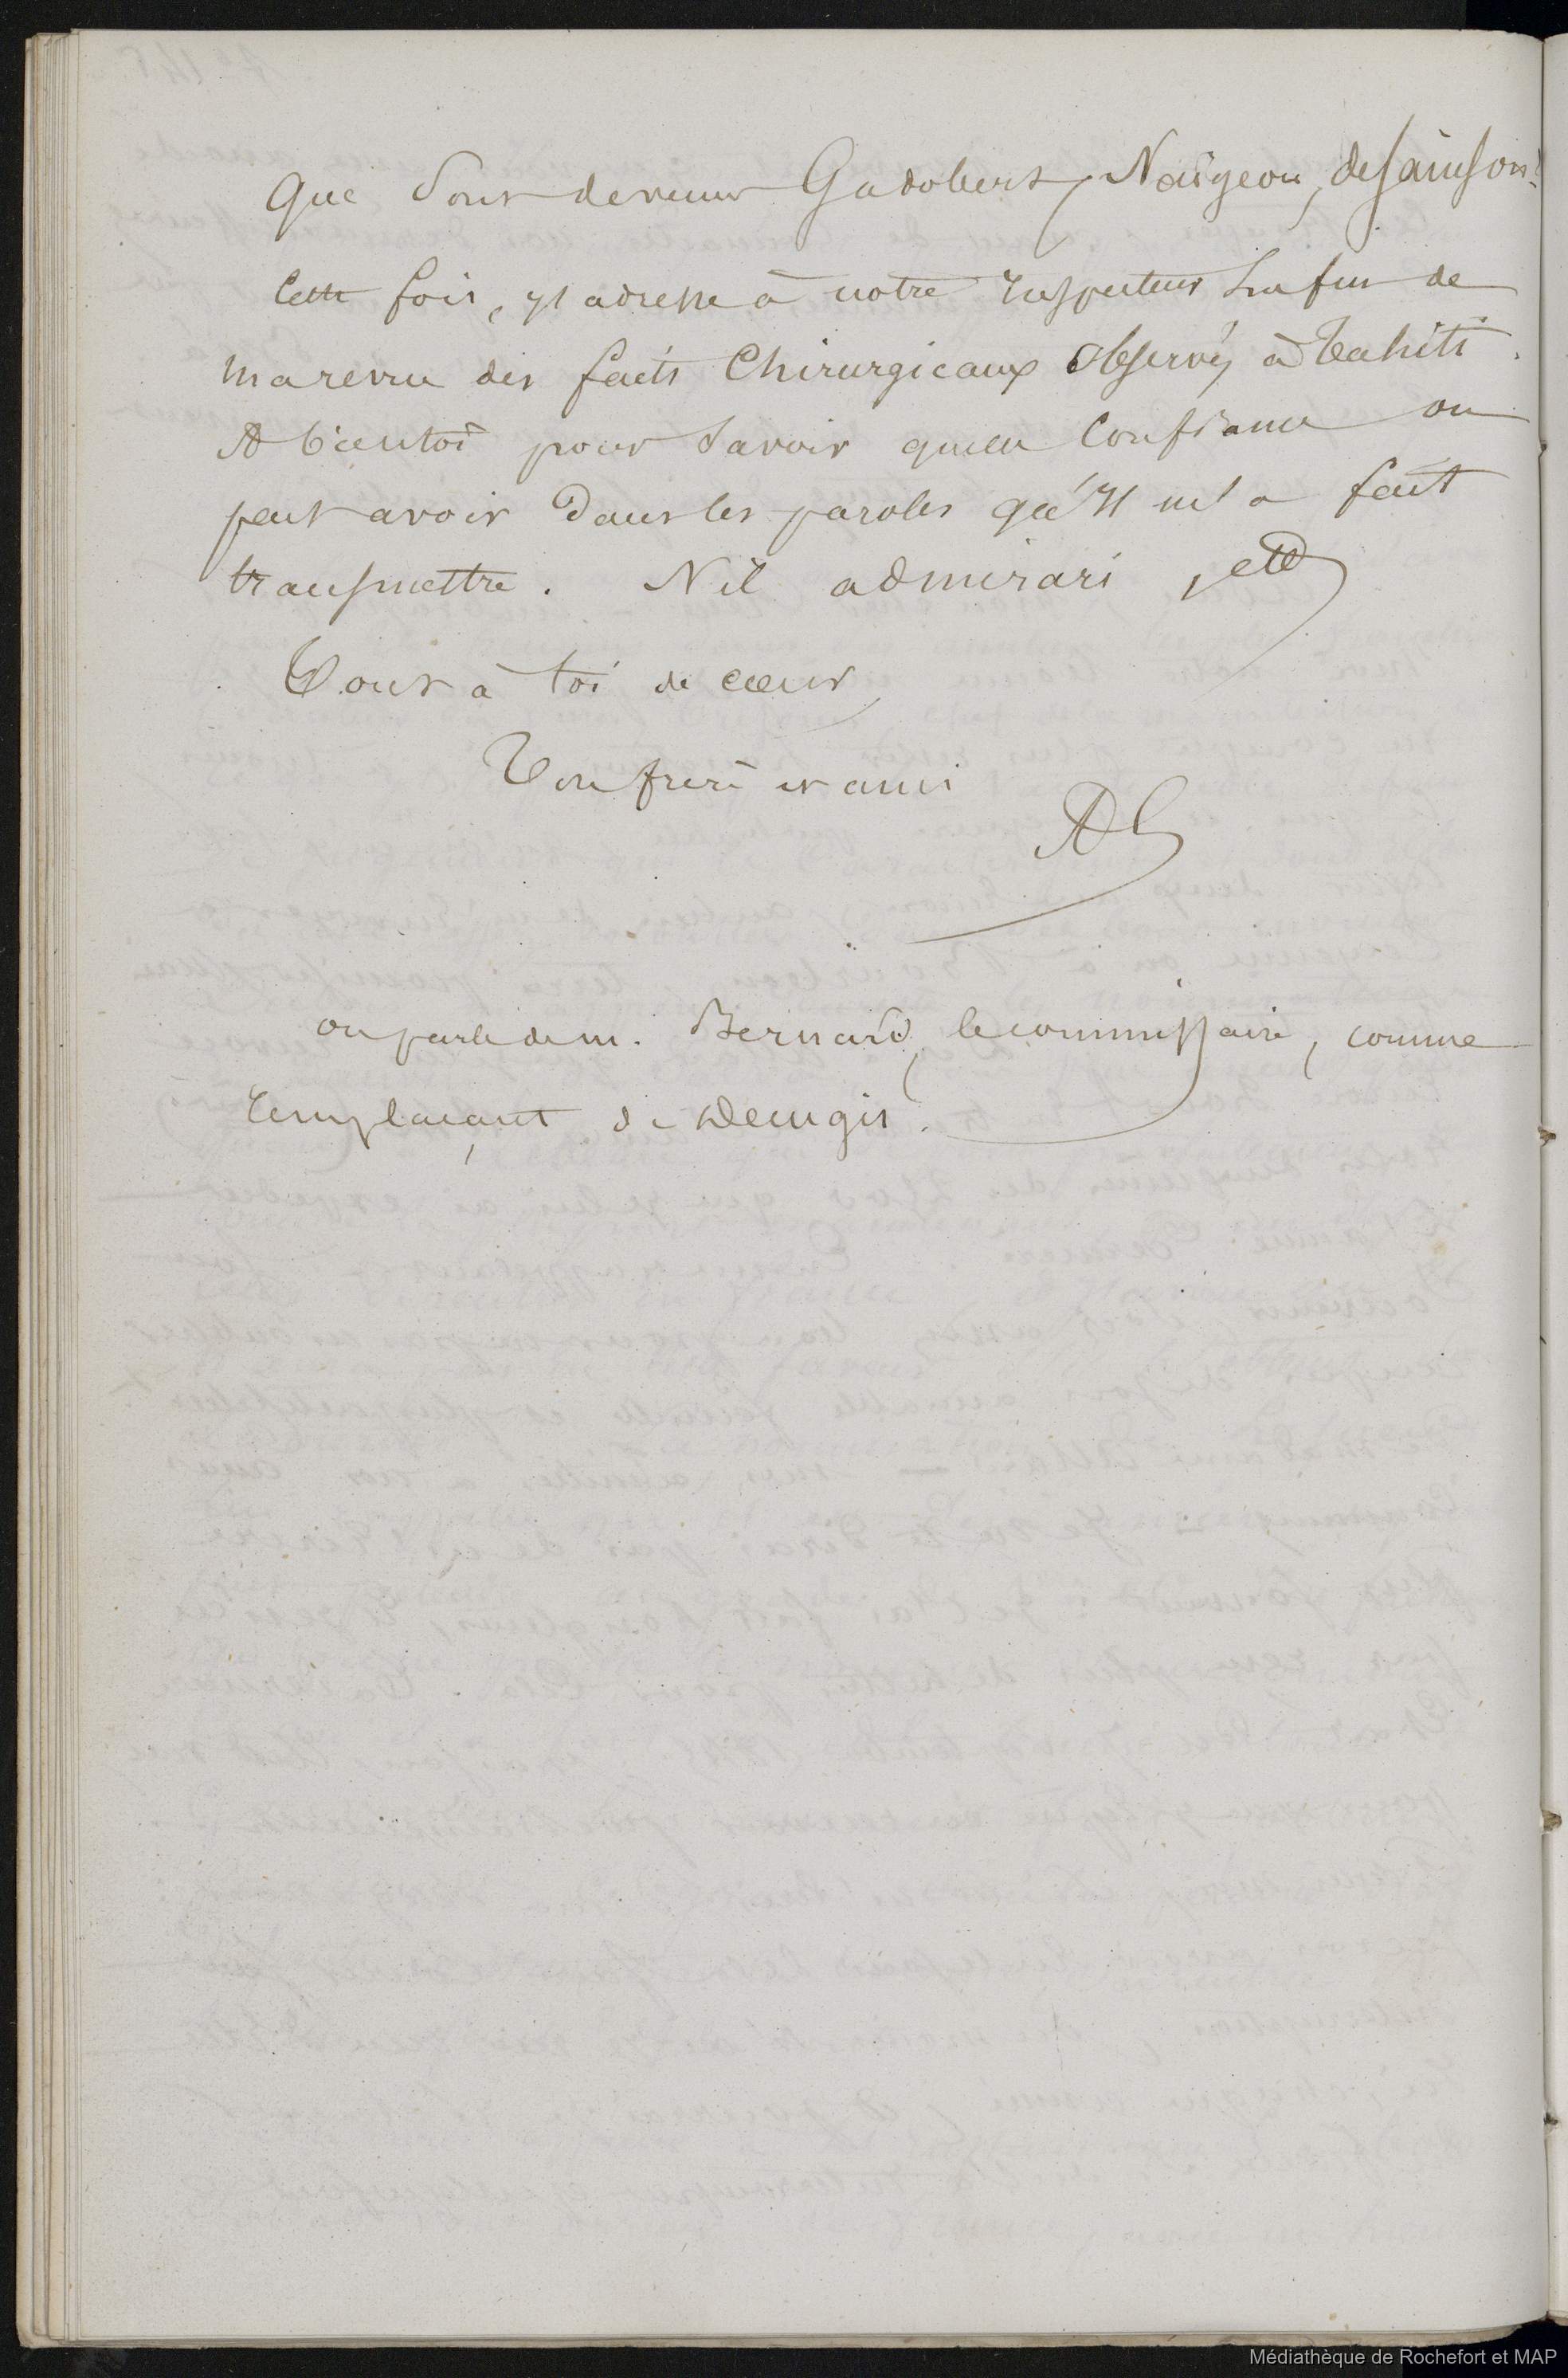 Que sont devenus Gadobert, Naugeon, de Sainson?
Cette fois, j'adresse à notre Inspecteur la fin de
ma revue des faits Chirurgicaux Observés à Tahiti.
A bientôt pour savoir quelle confiance on
peut avoir dans les paroles qu'il m'a fait
transmettre. Nil admirari, etc
Tout à toi de cœur
Ton frère et ami
AL
on parle de m. Bernard, le commissaire, comme
remplaçant de
Médiathèque de Rochefort et MAP